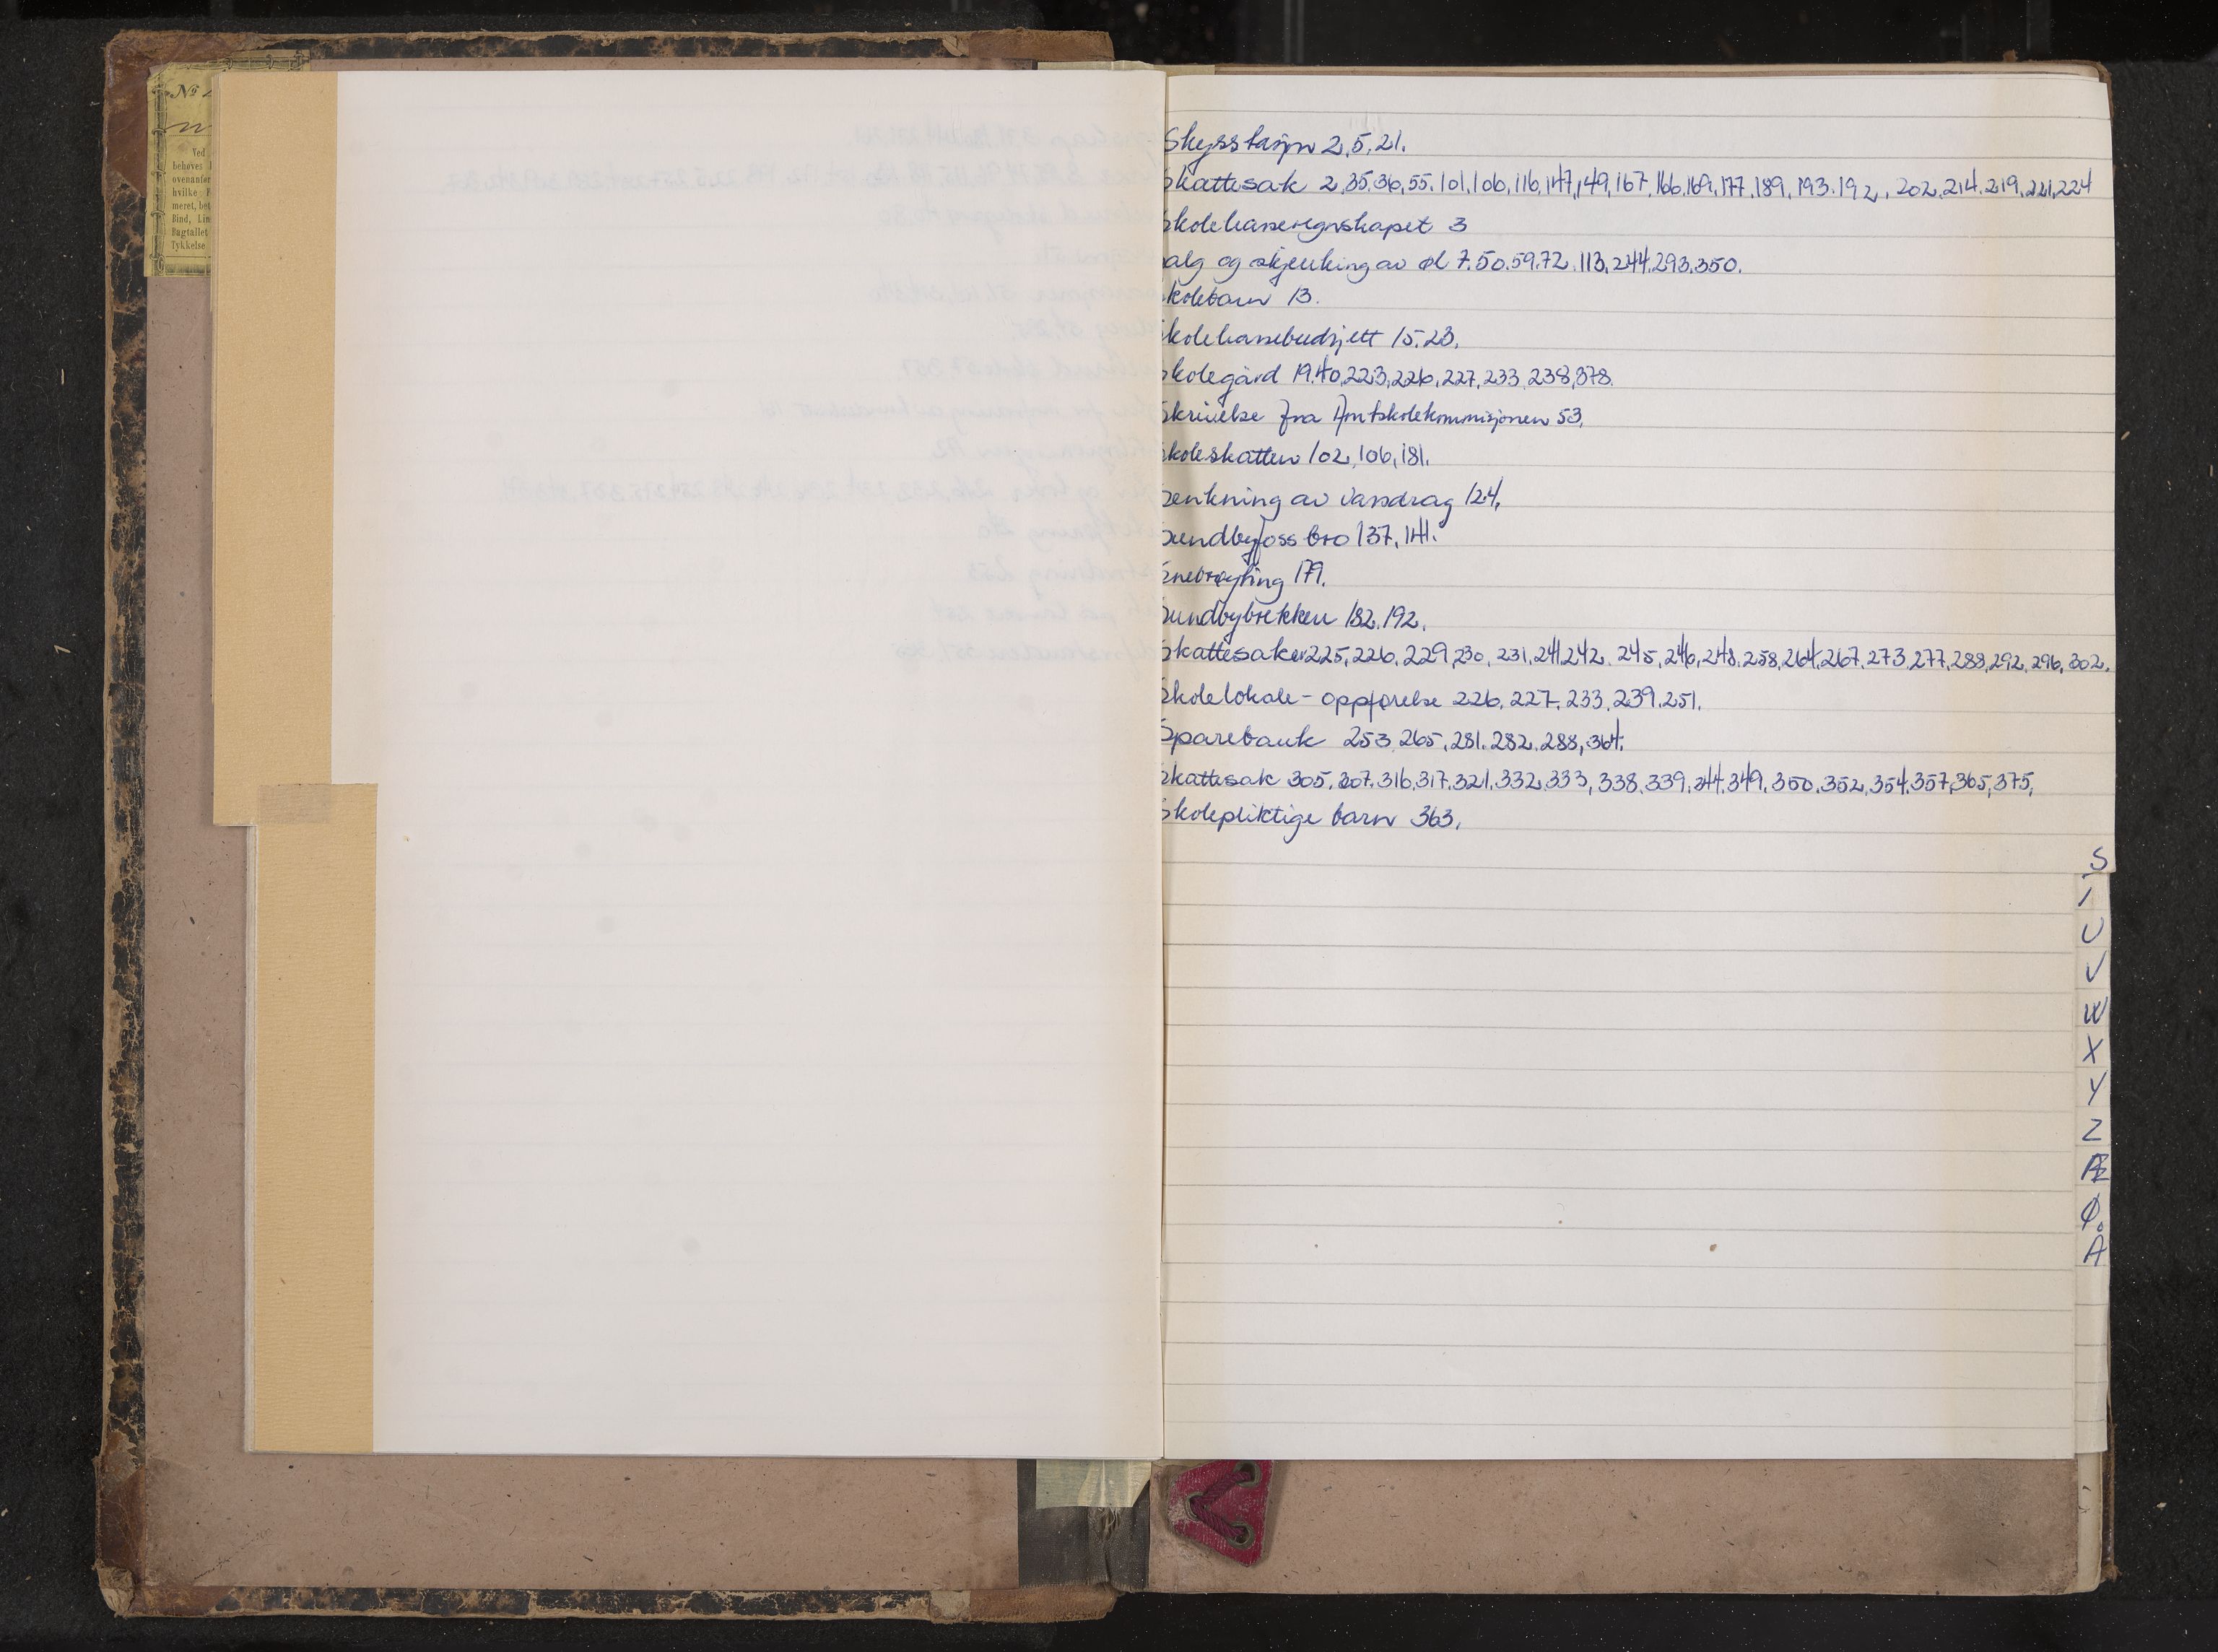 Nº
Ved
behøves
ovenanfør
hvilke F
meret, bet
Bind, Lin
Bagtallet
Tykkelse
Skysstasjon 2,5,21.
Skattesak 2,35,36,55,101,106,116,147,149,167,166,169,177,189,193.192,202,214.219,221,224
Skolekasseregnskapet 3
Salg og skjenking av øl 7.50.59.72.113,244.293.350.
Skolebarn 13.
Skolekassebudsjett 15.23.
Skolegård 19.40,223,226,227,233,238,378.
Skrivelse fra Amtskolekommisjonen 53.
Skoleskatten 102,106,181.
Senkning av vassdrag 124.
Sundbyfoss bro 137,141.
Snebrøyting 179.
Sundbybrekken 182.192.
Skattesaker 225,226,229,230,231,241,242,245,246,248,258,264,267,273,277,288,292,296,302.
Skolelokale - oppførelse 226,227,233,239,251.
Sparebank 253,265,281,282,288,364.
Skattesak 305.307.316.317.321.332.333,338.339.344.349.350.352,354.357,365,375,
Skolepliktige barn 363.
S
T
U
V
W
X
Y
Z
Æ
Ø
Å